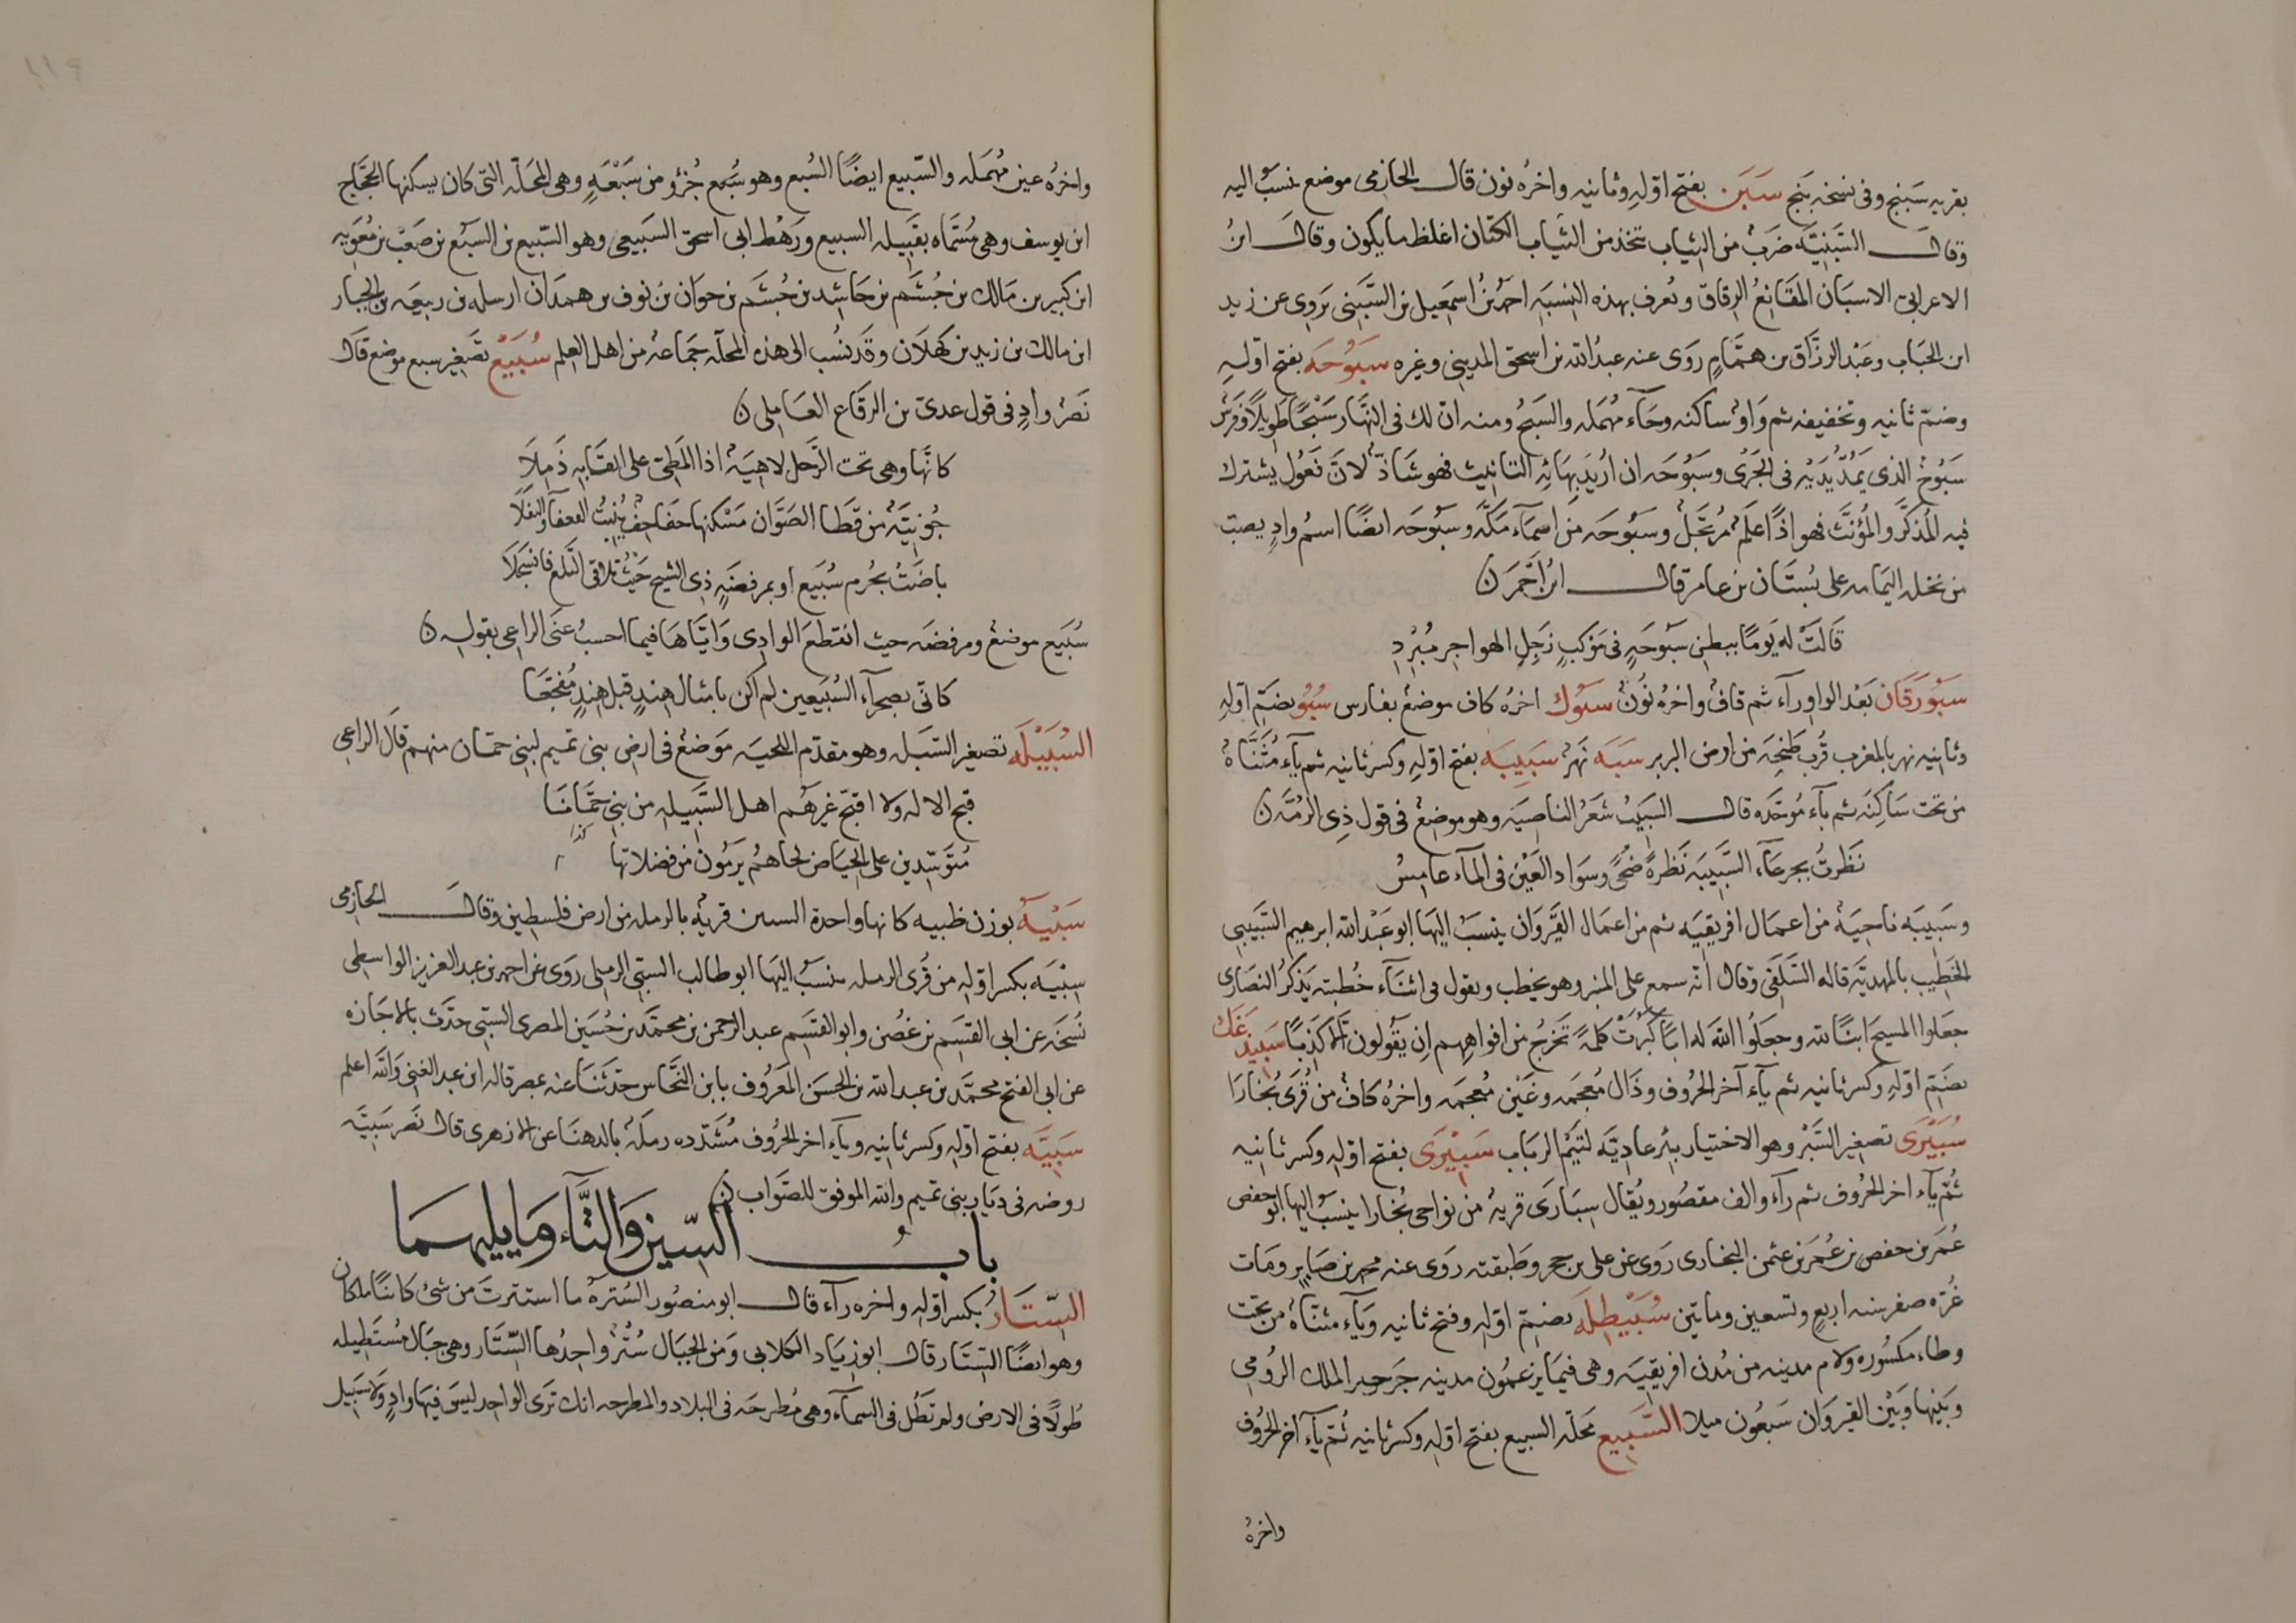 بقريه سَبَنج وفى نسخه بَنج سَبَن بفتح اوّلهِ وثانيه واخرُه نون قال الحازمى موضع ينسبُ اليه
وقال السَّبَنِيَّه ضَربٌ من الثياب تتخذ من الثياب الكتان اغلظ ما يكون وقال ابنُ
الاعرابىّ الاسبَان المقَانعُ الرقاق ويُعرف بهذه النِسبَةِ احمدُ بنُ اسمعيل بن السَّبَنِى يَروِى عن زيد
ابن الحبَاب وعَبْد الرزَّاق بن همَّامٍ رَوَى عنه عبدُ الله بن اسحق المدينى وغيره سَبُوحَه بفتح اوّلهِ
وضمّ ثانيه وتخفيفه ثم وَاوٌ ساكنه وحَآء مُهمَله والسَبحُ ومنه ان لك فى النَّهَار سَبْحًا طَوِيلًا وفرسٌ
سَبُوحٌ الذى يَمُدُّ يَدَيْه فى الجَرْى وسَبُوحَه ان اُرِيدَ بِهَائِه التانيث فهو شَاذٌّ لانَّ فَعُول يشترك
فيه المُذكَّر والمُؤنَّث فهو اذًا عَلم مُرتجَلٌ وسَبُوحَه من اسمآء مَكَّه وسَبُوحَه ايضًا اسمُ وادٍ يصبّ
من نخله اليمَامه على بُستَان بن عامر قال ابنُ احْمَر ن
قَالَتْ له يَومًا ببطن سَبُوحَةٍ فى مَوكبٍ زَجِلِ الهواجر مُبْرِدِ
سَبُورَقَان بَعْد الواو رآء ثم قاف واخرُه نُونٌ سَبُوك اخرُه كاف موضع بفارس سُبُو بضمّ اوّلهِ
وثانِيه نهر بالمغرب قُربَ طنجَه من ارض البربر سَبَه نَهْرٌ سَبِيبَه بفتح اوّلهِ وكسر ثانيه ثم يآء مُثَنَّاه
من تحت سَاكِنَه ثم بآء مُوَحَّده قال السَبِيبُ شَعرُ الناصِيَه وهو موضِعٌ فى قول ذِى الرُمَّه ن
نَظَرتُ بجرعَآء السَّبِيبَه نَظرةً ضُحًى وسَوَاد العَيْن فى المآء غامِسُ
وسَبِيبَه ناحِيَه من اعمَال افريقيَه ثم من اعمَال القَيْرَوَان ينسَبُ اليهَا ابو عَبْد الله ابرهيم السَّبِيبِى
الخَطِيب بالمهديَّه قاله السَّلَفَى وقال انّه سمع على المنبر وهو يخطب ويقول فى اثنآء خُطبته يَذكرُ النصَارى
جَعَلوا المسيحَ ابنًا لله وجَعَلُوا اللهَ له ابًا كَبُرَتْ كلمةً تَخرُج من افواهِهِم اِن يَقُولون اِلّا كَذِبًا سَبِيذَغك
بضم اوّلهِ وكسر ثانيه ثم يآء آخر الحُروف وذَال مُعجَمه وغَيْن مُعجَمه واخرُه كافٌ من قُرَى بُخَارَا
سُبَيْرَى تصغير السَّبْر وهو الاختيار بئر عادِيَّه لتَيْم الرِبَاب سَبِيْرَى بفتح اوّلهِ وكسر ثانيه
ثُمّ يآء اخر الحُروف ثم رآء والف مقصُور ويُقال سِبَارَى قريهٌ من نواحى بُخَارا ينسَبُ اليها ابو حفص
عُمَر بن حفص بن عُمَر بن عثمن البخارى رَوَى عن على بن حجر وطَبقته رَوَى عنه محمد بن صَابِرٍ ومَات
غُرّه صفر سنه اربع وتسعين وماتين سُبَيْطِلَه بضمّ اوّلهِ وفتح ثانيه ويآء مثنّاه من تحت
وطاء مكسُوره ولام مدينه من مُدن افريقيَه وهى فيمَا يزعمُون مدينه جَرجير الملك الرُومى
وبَيْنها وبَيْن القيرَوَان سَبعُون ميلا السَّبِيع محلّه السبيع بفتح اوّلهِ وكسر ثانيه ثُمّ يآء آخر الحُروف
واخرُه
واخرُه عين مُهمَله والسَّبيع ايضًا السُبع وهو سُبع جُزؤ من سَبْعَةٍ وهى المحَلّه التى كان يسكنها الحَجَّاج
ابن يوسف وهى مُسَمَّاه بقَبِيله السبيع ورَهْط ابى اسحق السَبيعى وهو السَّبيع بن السَبُع بن صَعْب بن مُعَوِيه
ابن كبير بن مَالك بن جُشَم بن حَاشِد بن جُشَم بن خَيوَان بن نوف بن همدان ارسله بن ربيعَه بن الخيار
ابن مالك بن زيد بن كَهْلَان وقَد نُسب الى هذه المحلّه جَمَاعهٌ من اهل العِلم سُبَيْع تصغير سبع موضع قال
نَصْرٌ وادٍ فى قول عدىّ بن الرقَاع العَامِلى ن
كانَّهَا وهى تحت الرَّحل لاهيَةٌ اذا المَطِىّ على انقَابِه ذَمِلَا
جُونِيَّةٌ من قَطَا الصَوَّان مَسْكنها حفَاجف يُنبِتُ القعفآء والنَفَلَا
بَاضَتْ بحُزم سُبَيع او بمرفضِّهِ ذِى الشيح حَيْث تلاقى التَّلع فانسَجَلَا
سُبَيع موضع ومرفضّه حيث انقطعَ الوادِى وَايَّاهَا فيما احسبُ عَنَى الراعِى بقوله ن
كانّى بصحرآءِ السُبَيعين لم اكن بامثال هِندٍ قبل هِندٍ مُفَجَّعَا
السُبَيْلَه تصغير السَبَل وهو مقدّم اللحيَه مَوضعٌ فى ارض بنى تميم لبنى حمّان منهم قال الراعى
قبح الاله ولا اقبّح غيرهُم اهل السُبَيله من بنى حِمَّانَا
مُتَوَسِّدِين على الحِيَاض لحاهُم يَرمُون من فضلاتها كذا
سَبْيَه بوزن ظبيه كانها واحدة السبى قريه بالرمله من ارض فلسطين وقال الحازمى
سِبْيَه بكسر اوّلهِ من قُرى الرمله ينسبُ اليها ابو طالب السَبيى الرملى رَوَى عن احمد بن عبد العزيز الواسطى
نُسخَه عن ابى القسَم بن غصُن وابو القسَم عبد الرحمن بن محمَّد بن حُسَين المصرى السبيى حدّث بالاجَازه
عن ابى الفتح محمَّد بن عبد الله بن الحسَن المعرُوف بابن النَحَّاس حدّثنَا عنه بمصر قاله ابن عبد الغنى وَاللَّه اعلم
سَبِيَّه بفتح اوّلهِ وكسر ثانيه ويآء اخر الحُروف مُشَدّده رملهٌ بالدهنَا عن الازهرى قال نَصر سَبِيَّه
روضه فى ديَار بنى تميم والله الموفق للصّوَاب ن
بابُ السّين وَالتَّآء وَمَا يليهمَا
السِّتَارُ بكسر اوّلهِ واخره رآء قال ابو منصُور السُترهُ ما استترتَ من شئ كائنًا ما كان
وهو ايضًا السِتَار قال ابو زيَاد الكلابى ومَن الجبَال سُتُرٌ واحِدُها السِّتَار وهى جبَال مُستَطِيله
طُولًا فى الارض ولم تَطُل فى السمآء وهى مُطرحَه فى البلاد والمطرحه انك تَرَى الواحد ليسَ فيهَا وادٍ ولا سَبِيل